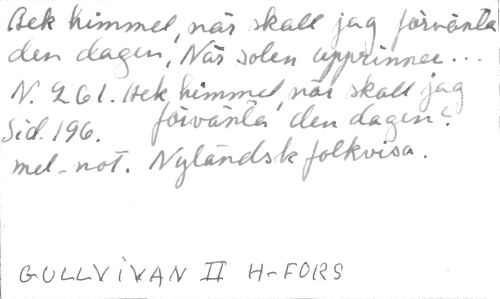 Ack himmel, när skall jag förvänta
den dagen, När solen upprinner...
N. 261. Ack himmel, när skall jag
Sid. 196. förvänta den dagen?
mel-not. Nyländsk folkvisa.
GULLVIVAN II H-FORS